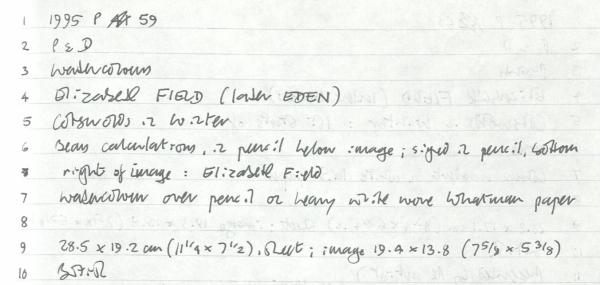 1 1995 P 59
2 P & D
3 Watercolours
4 Elizabeth FIELD (later EDEN)
5 Cotswolds in Winter
6 Bears calculations, in pencil below image; signed in pencil, bottom
right of image: Elizabeth Field
7 Watercolour over pencil on heavy white wove Whatman paper
8
9 28.5 x 19.2 cm (11 1/4 x 7 1/2), sheet; image 19.4 x 13.8 (7 5/8 x 5 3/8)
10